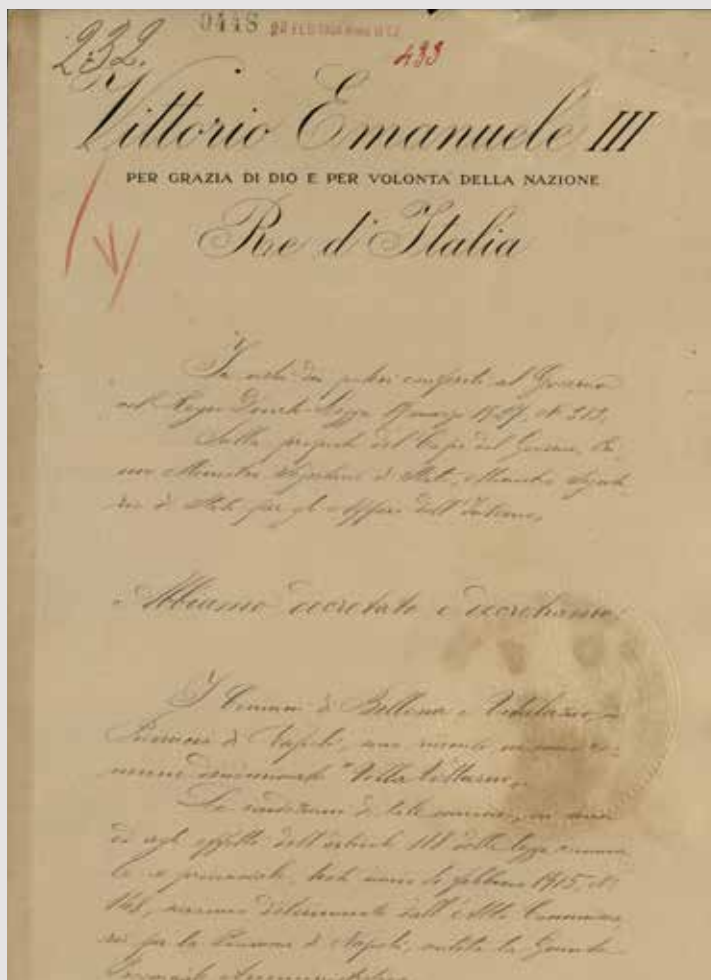 232.
0448
433
Vittorio Emanuele III
PER GRAZIA DI DIO E PER VOLONTÀ DELLA NAZIONE
Re d'Italia
In virtù dei poteri conferiti al Governo
col Regio Decreto Legge 17 marzo 1927, N. 383,
Sulla proposta del Capo del Governo, Pri
mo Ministro Segretario di Stato, Ministro Segreta
rio di Stato per gli Affari dell'Interno,
Abbiamo decretato e decretiamo:
I Comuni di Bellona e Vitulazio, in
Provincia di Napoli, sono riuniti in unico co
mune denominato "Villa Volturno".
Le condizioni di tale unione, ai sensi
ed agli effetti dell'articolo 118 della legge comuna
le e provinciale, testo unico 4 febbraio 1915, N.
148, saranno determinate dall'Alto Commissa
rio per la Provincia di Napoli, sentita la Giunta
Provinciale Amministrativa.